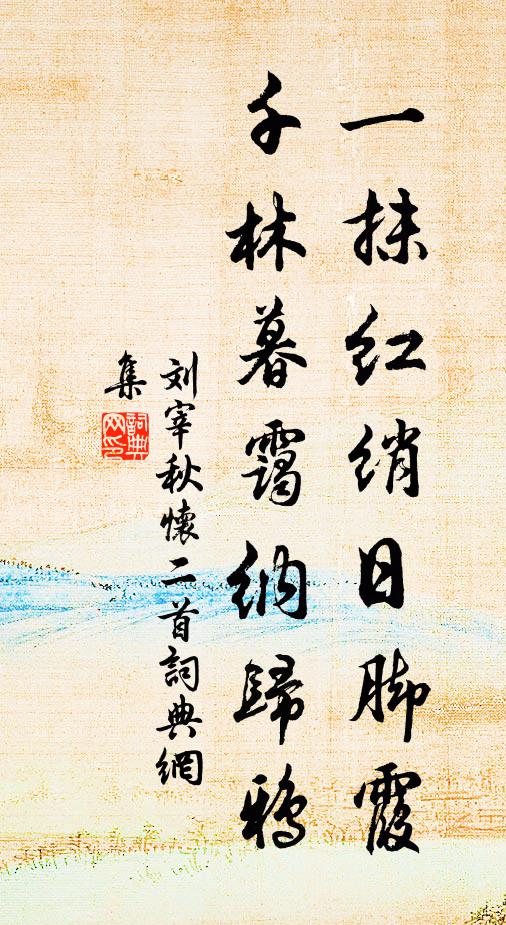 一抹红绡日脚霞
千林暮霭纳歸鸦
刘宰秋懷二首詞典網
集
詞典网印